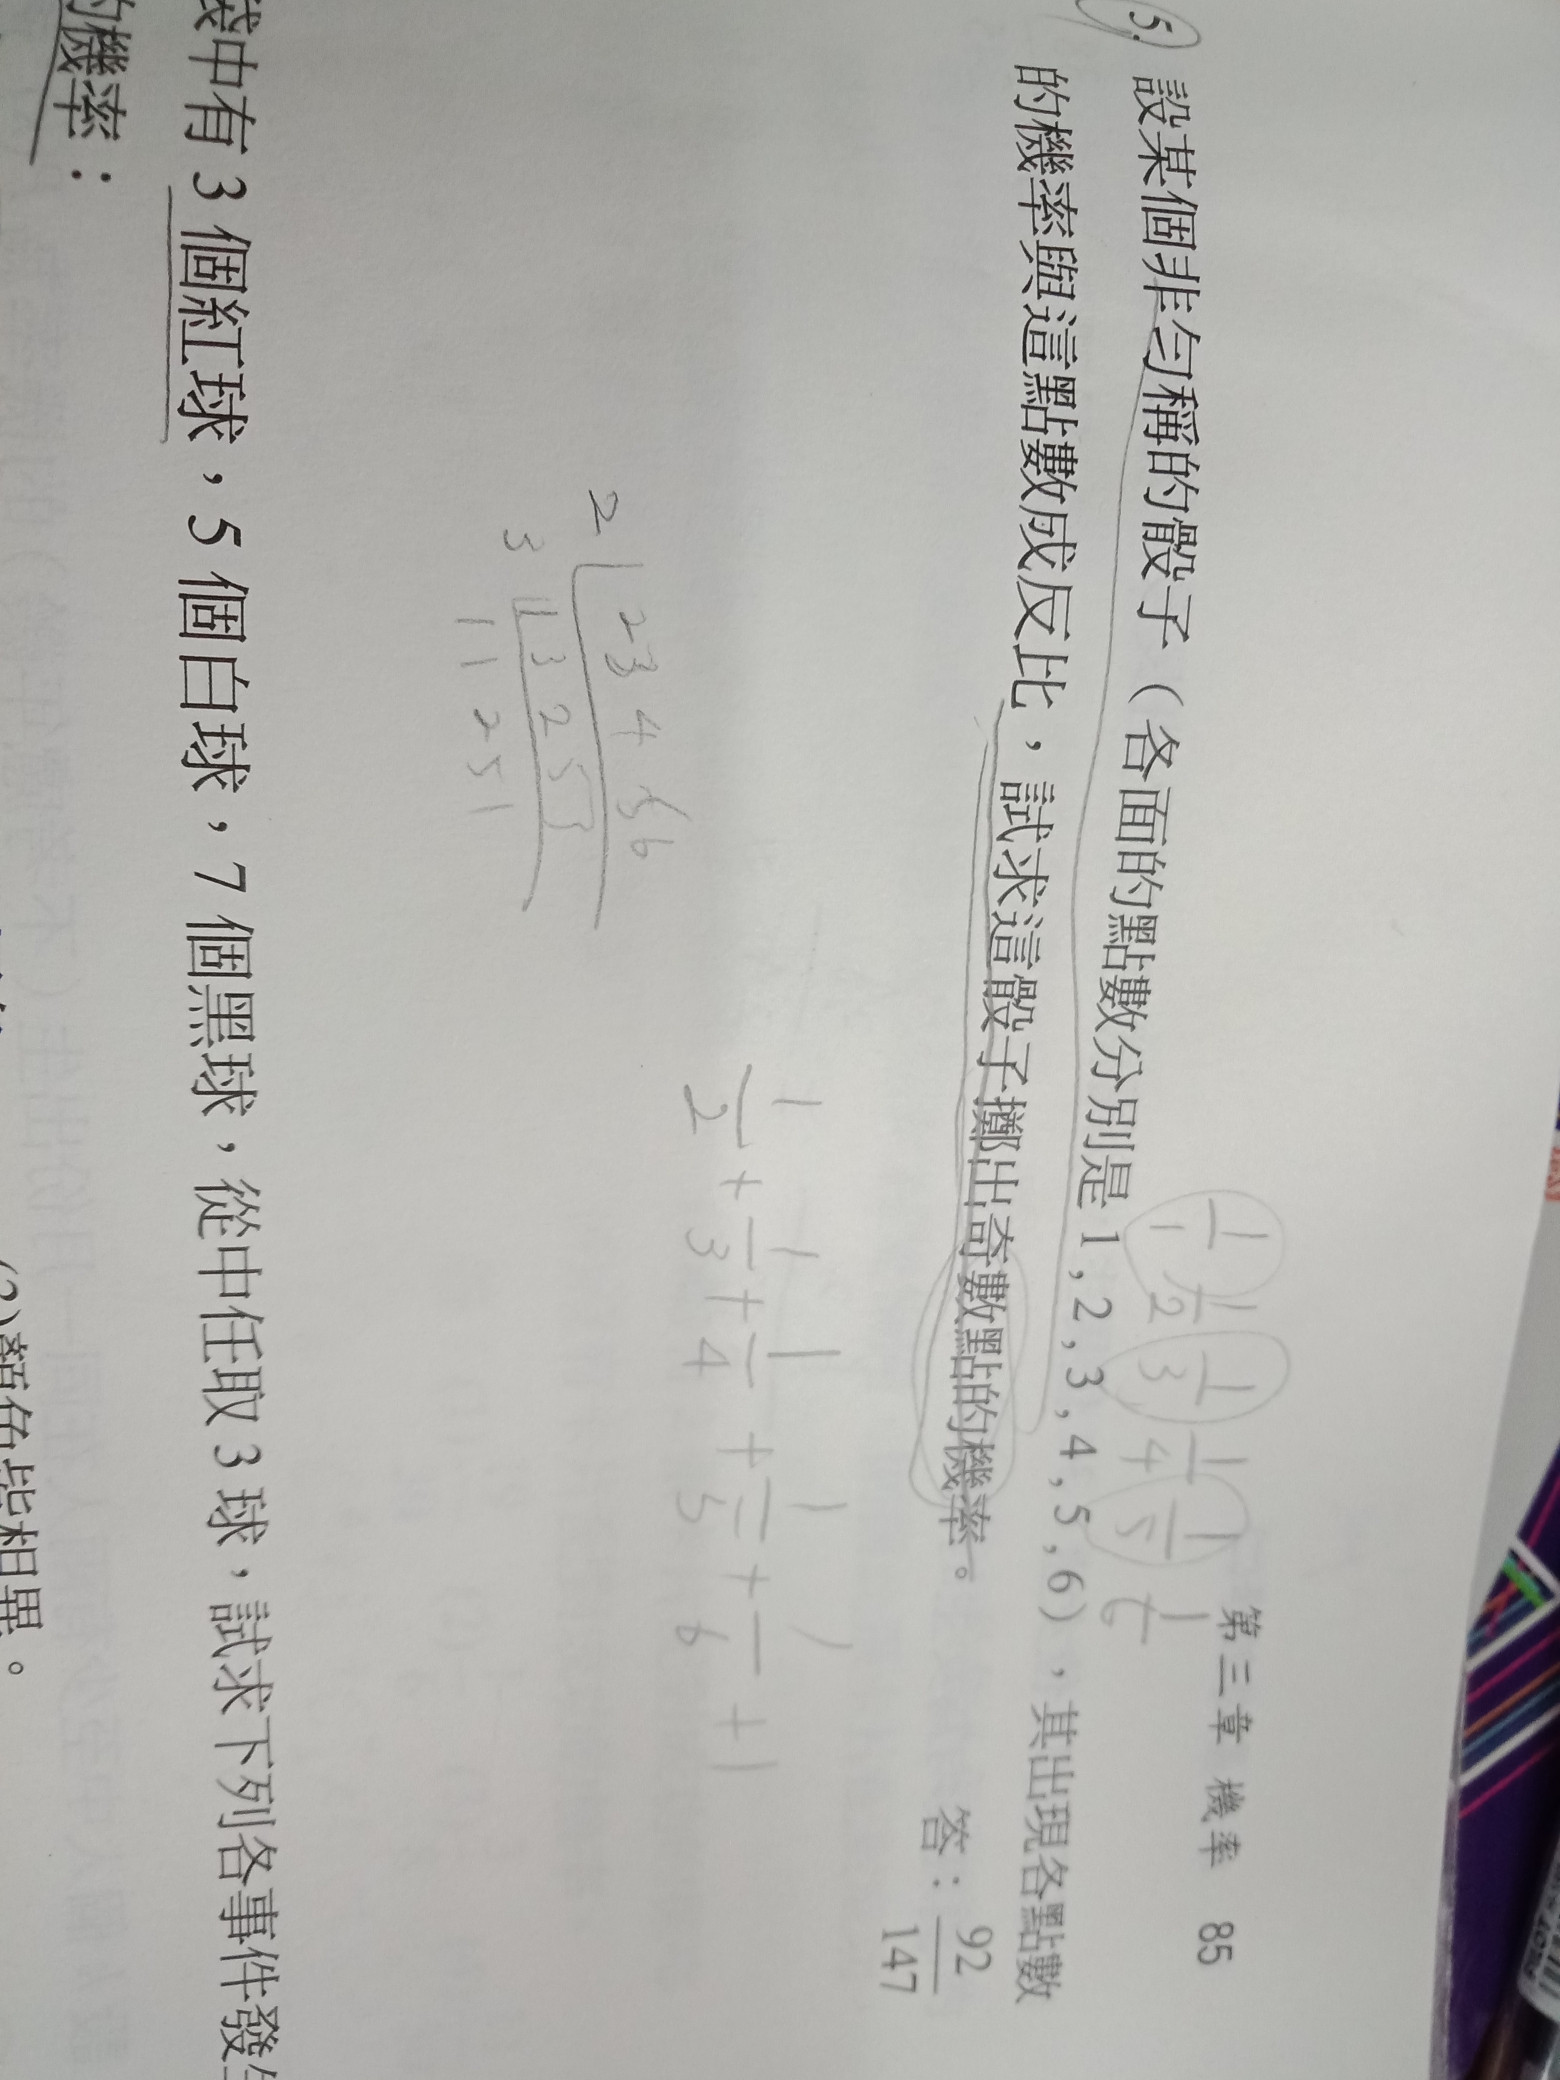 第三章 機率 85
5. 設某個非勻稱的骰子（各面的點數分別是 1 , 2 , 3 , 4 , 5 , 6），其出現各點數
的機率與這點數成反比，試求這骰子擲出奇數點的機率。
答：92/147
1/1 1/2 1/3 1/4 1/5 1/6
1/2 + 1/3 + 1/4 + 1/5 + 1/6 + 1
2 2 3 4 5 6
3 1 3 2 5 3
1 1 2 5 1
袋中有 3 個紅球，5 個白球，7 個黑球，從中任取 3 球，試求下列各事件發生
的機率：
(2)顏色皆相異。